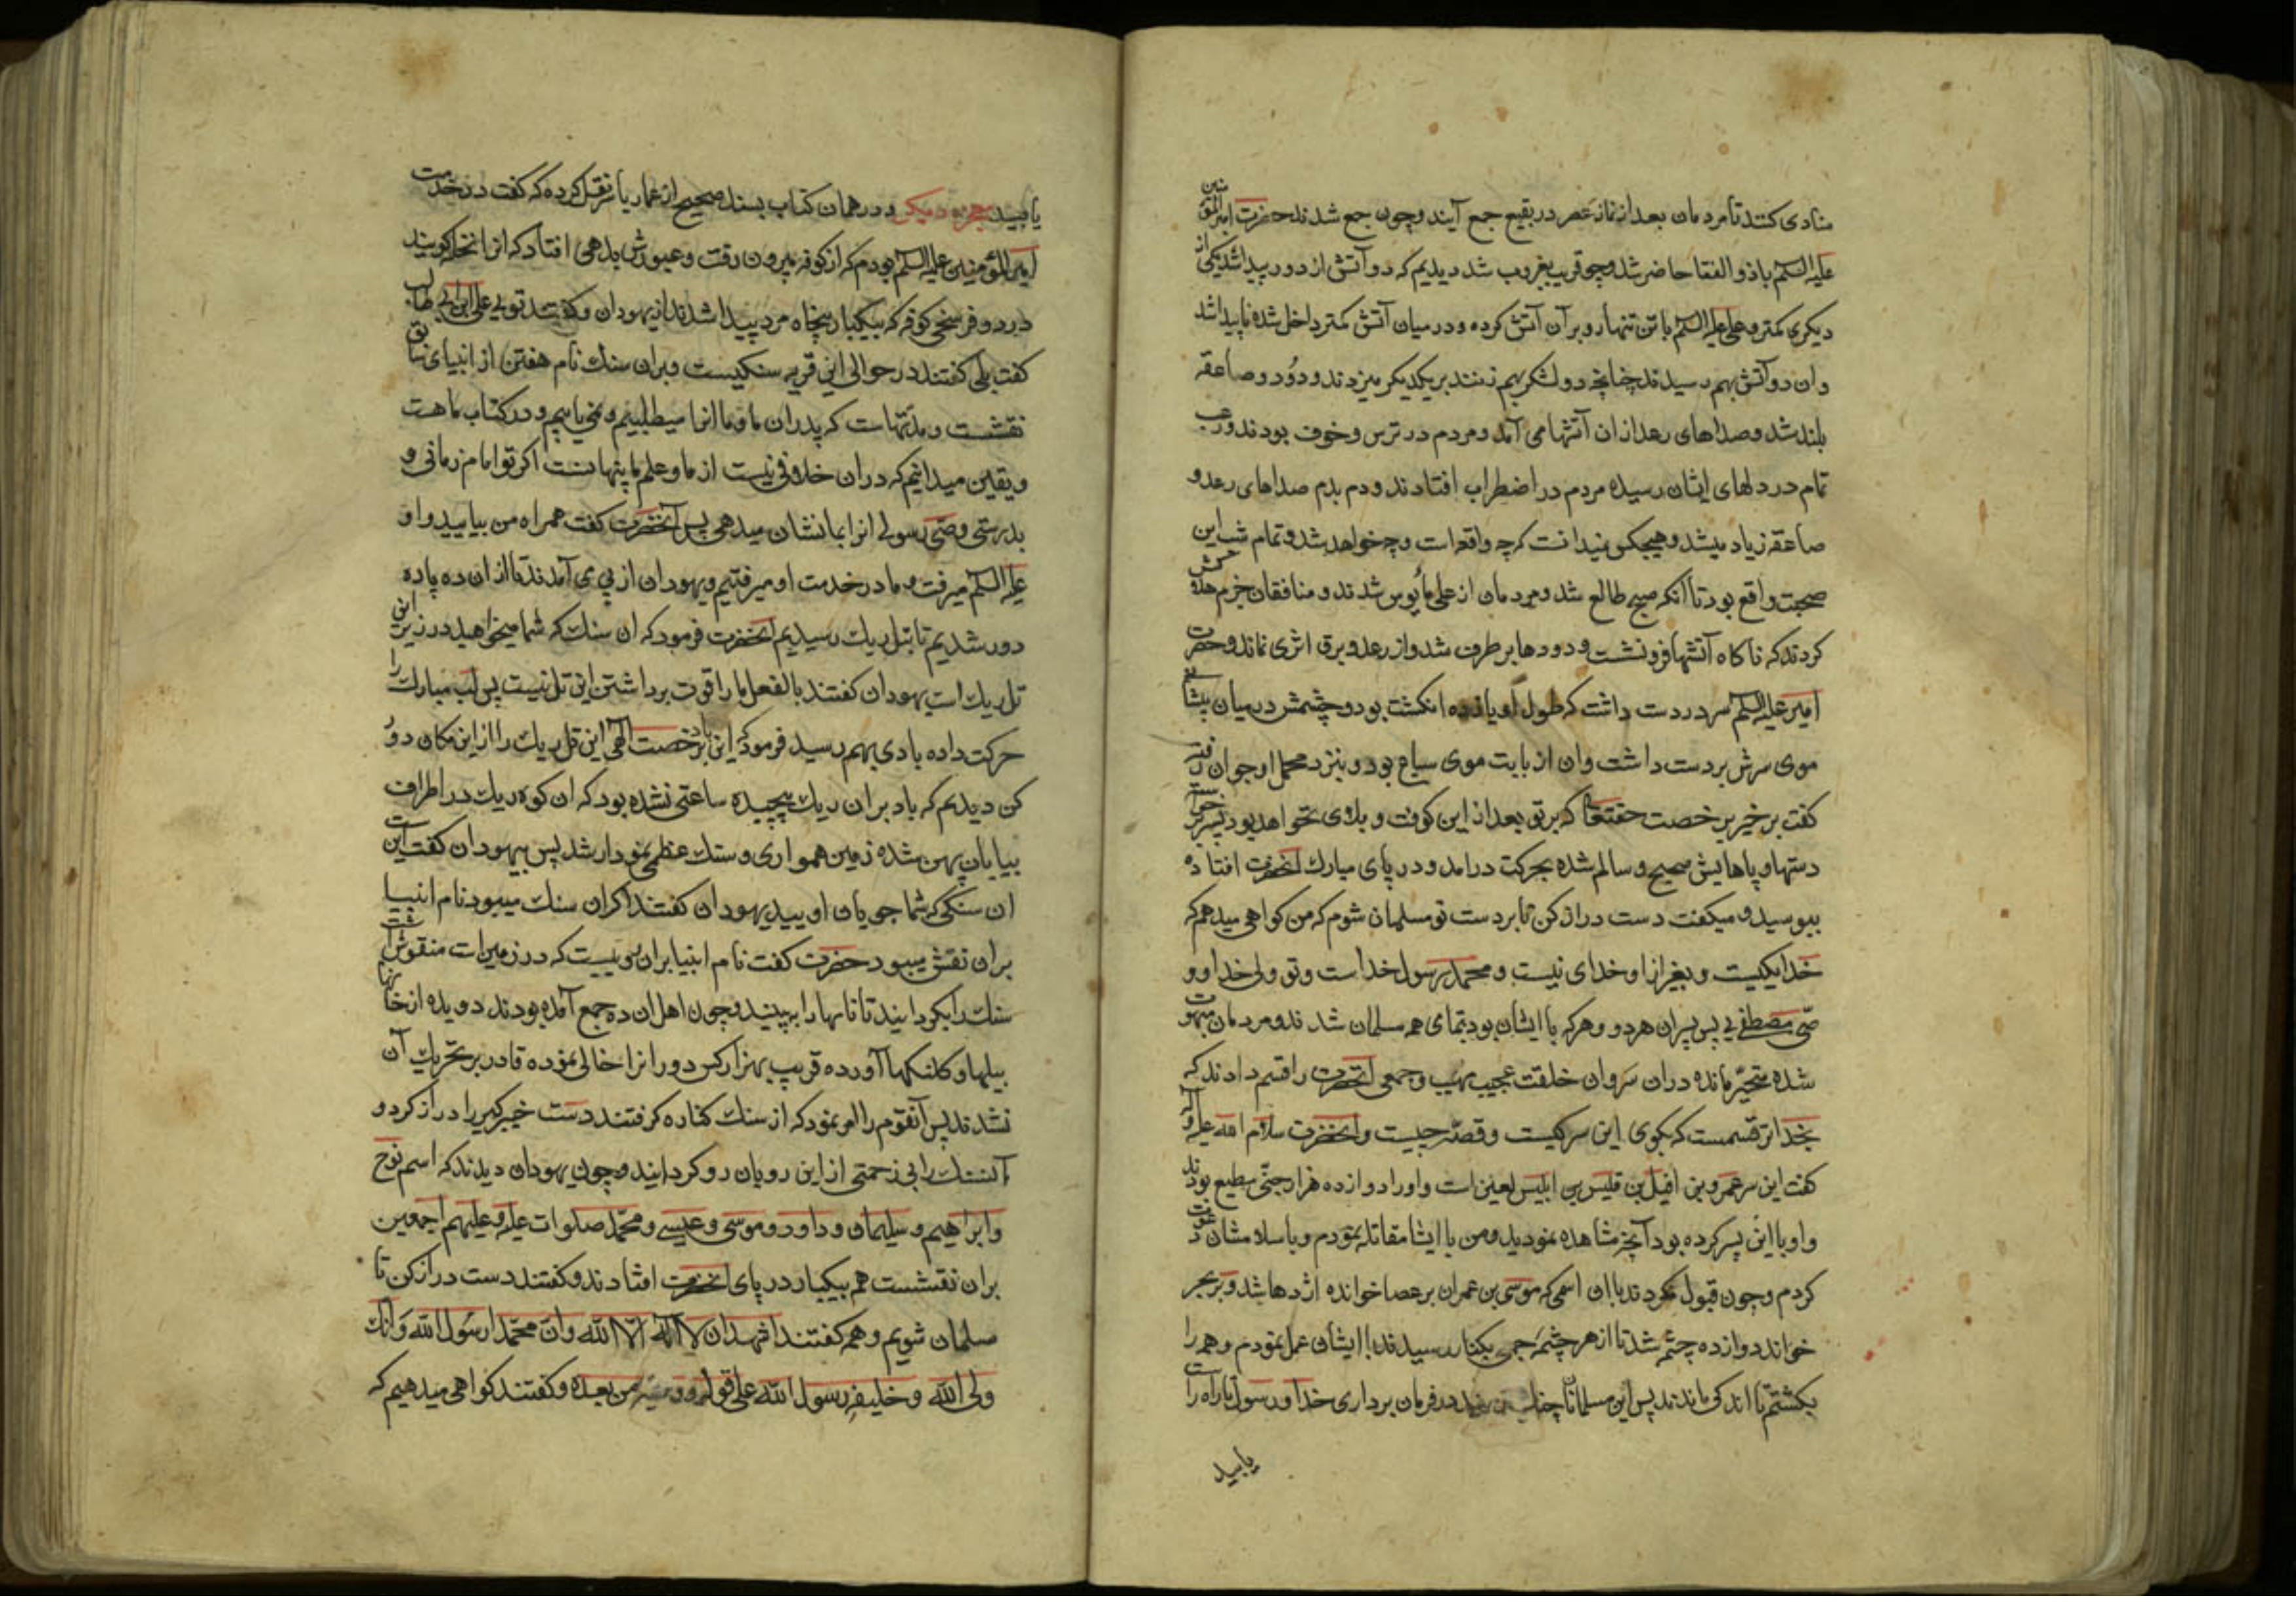 منادی کنند تا مردمان بعد از نماز عصر در بقیع جمع آیند و چون جمع شدند حضرت امیر المؤمنین
علیه السلم با ذو الفقار حاضر شد و چون قریب بغروب شد دیدیم که دو آتش از دور پیدا شد یکی از
دیکری کمتر و علی علیه السلم با تن تنها رو بر آن آتش کرده و در میان آتش کمتر داخل شده ناپیدا شد
و ان دو آتش بهم رسیدند چنانچه دو لشکر بهم زنند بر یکدیکر میزدند و دود و صاعقه
بلند شد و صداهای رعد از ان آتشها می آمد و مردم در ترس و خوف بودند و رعب
تمام در دلهای ایشان رسیده مردم در اضطراب افتادند و دم بدم صداهای رعد و
صاعقه زیاد میشد و هیچکس نمیدانست که چه واقع است و چه خواهد شد و تمام شب این
صحبت واقع بود تا آنکه صبح طالع شد و مردمان از علی مأیوس شدند و منافقان جزم
کردند که ناکاه آتشها فرو نشست و دودها بر طرف شد و از رعد و برق اثری نماند و حضرت
امیر علیه السلم سر در دست داشت که طول او یازده انکشت بود و چشمش در میان پیشانی
موی سرش بر دست داشت و ان از بابت موی سیاه بود و بنزد محمل او جوان رفته
کفت بر خیز بر خصت حقتعا که بر تو بعد از این کوفت و بلای نخواهد بود پسر بر خواست
دستها و پاهایش صحیح و سالم شده بحرکت درامد و در پای مبارک انحضرت افتاده
ببوسید و میکفت دست دراز کن تا بر دست تو مسلمان شوم که من کواهی میدهم که
خدا یکیست و بغیر از او خدای نیست و محمد رسول خداست و تو ولی خدا و و
صی مصطفی پس پسران هر دو و هرکه با ایشان بود بتمامی همه مسلمان شدند و مردمان مبهوت
شده متحیر مانده در ان سر و ان خلقت عجیب مهیب و جمعی انحضرت را قسم دادند که
بخدا بر تو قسمست که بکوی این سر کیست و قصه چیست و انحضرت سلام الله علیه و آله
کفت این سر عمرو بن افیل بن قلیس بن ابلیس لعین است و او را دوازده هزار جنی مطیع بودند
و او با این پسر کرده بود آنچه مشاهده نمودید و من با ایشا مقاتله نمودم و با سلامشان دعوت
کردم و چون قبول نکردند با ان اسمی که موسی بن عمران بر عصا خوانده اژدها شد و بر بحر
خواند دوازده چشمه شد تا از هر چشمه جمعی بکنار رسیدند با ایشان عمل نمودم و همه را
بکشتم تا اندکی ماندند پس این مسلمانان در فرمان برداری خدا و رسول تا راه راست
یابید
یابید معجزه دیکر و در همان کتاب بسند صحیح از عمار یاسر نقل کرده که کفت در خدمت
امیر المؤمنین علیه السلم بودم که از کوفه بیرون رفت و عبورش بدهی افتاد که از انخله کویند
در دو فرسخی کوفه که بیکبار پنجاه مرد پیدا شدند از یهودان و کفتند تویی علی ابن ابی طالب
کفت بلی کفتند در حوالی این قریه سنکیست و بران سنک نام هفتن از انبیای سابق
نقشست و مدتهاست که پدران ما و ما انرا میطلبیم و نمی یابیم و در کتاب ما هست
و یقین میدانیم که دران خلافی نیست از ما و علم ما پنهانست اکر تو امام زمانی و
بدرستی وصی رسولی انرا بما نشان میدهی پس آنحضرت کفت همراه من بیایید و او
علیه السلم میرفت و ما در خدمت او میرفتیم و یهودان از پی می آمدند تا از ان ده پاره
دور شدیم تا بتل ریک رسیدیم انحضرت فرمود که ان سنک که شما میخواهید در زیر این
تل ریک است یهودان کفتند بالفعل ما را قوت برداشتن این تل نیست پس لب مبارک را
حرکت داده بادی بهم رسید فرمود که ای باد بر خصت الهی این تل ریک را از این مکان دور
کن دیدیم که باد بران ریک پیچیده ساعتی نشده بود که ان کوه ریک در اطراف
بیابان پهن شده زمین همواری و سنک عظیمی نمودار شد پس بیهودان کفت این است
ان سنکی که شما جویای اویید یهودان کفتند اکر ان سنک میبود نام انبیا
بران نقش میبود حضرت کفت نام انبیا بران سوییست که در زمین است منقوش است
سنک را بکردانید تا نامها را ببینید و چون اهل ان ده جمع آمده بودند دویده از خانها
بیلها و کلنکها آورده قریب بهزار کس دور انرا خالی نموده قادر بر تحریک آن
نشدند پس آنقوم را امر نمود که از سنک کناره کرفتند دست خیبر کیر را دراز کرد و
آنسنک را بی زحمتی از این رو بان رو کردانید و چون یهودان دیدند که اسم نوح
و ابراهیم و سلیمان و داود و موسی و عیسی و محمد صلوات علیه و علیهم اجمعین
بران نقشست هم بیکبار در پای انحضرت افتادند و کفتند دست دراز کن تا
مسلمان شویم و همه کفتند اشهد ان لا اله الا الله وان محمدا رسول الله وانک
ولی الله و خلیفه رسول الله علی قوله من بعده و کفتند کواهی میدهیم که